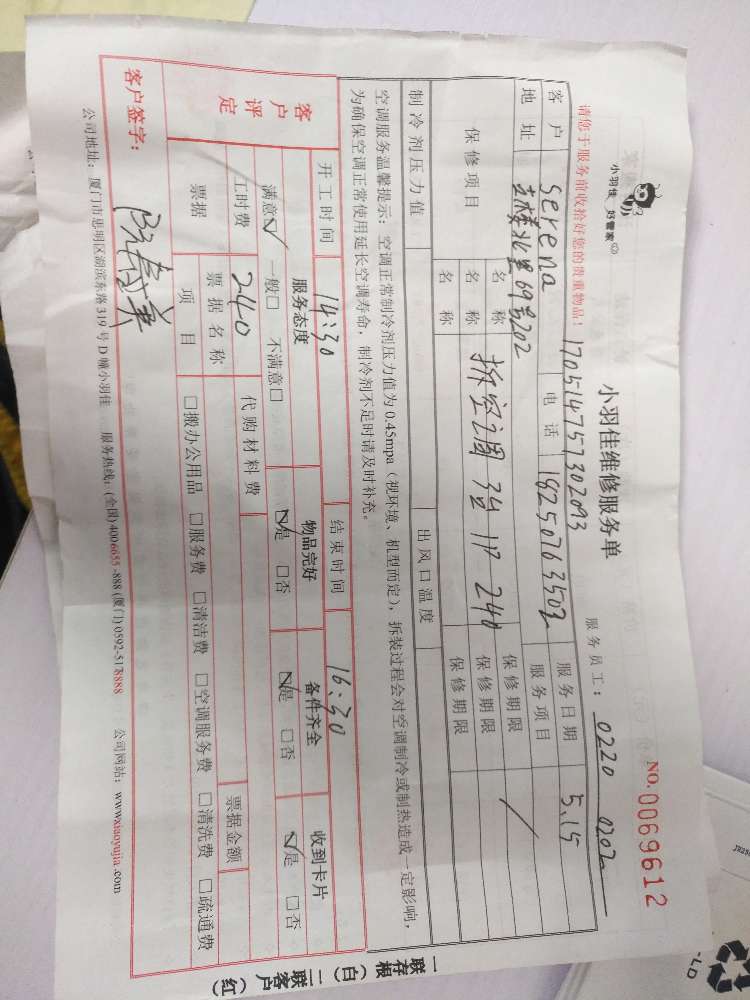 小羽佳 好管家
小羽佳维修服务单
NO.0069612
请您于服务前收拾好您的贵重物品！
170514757302093
服务员工： 0220 0202
客户 serena 电话 18250763503 服务日期 5.15
地址 69号202 服务项目
保修项目 名称 拆空调 3台 11P 240 保修期限
名称 保修期限
名称 保修期限
制冷剂压力值 出风口温度
空调服务温馨提示：空调正常制冷剂压力值为 0.45mpa（视环境、机型而定），拆装过程会对空调制冷或制热造成一定影响，
为确保空调正常使用延长空调寿命，制冷剂不足时请及时补充。
开工时间 14:30 结束时间 16:30
客户评定 服务态度 物品完好 备件齐全 收到卡片
满意☑ 一般□ 不满意□ ☑是 □否 ☑是 □否 ☑是 □否
工时费 240 代购材料费
票据 票据名称 票据金额
项目 □搬办公用品 □服务费 □清洁费 □空调服务费 □清洗费 □疏通费
客户签字：
公司地址：厦门市思明区湖滨东路 319 号 D 幢小羽佳 服务热线：(全国) 400 6655 -888 (厦门) 0592-5178888 公司网站：www.xiaoyujia.com
一联存根（白）二联客户（红）